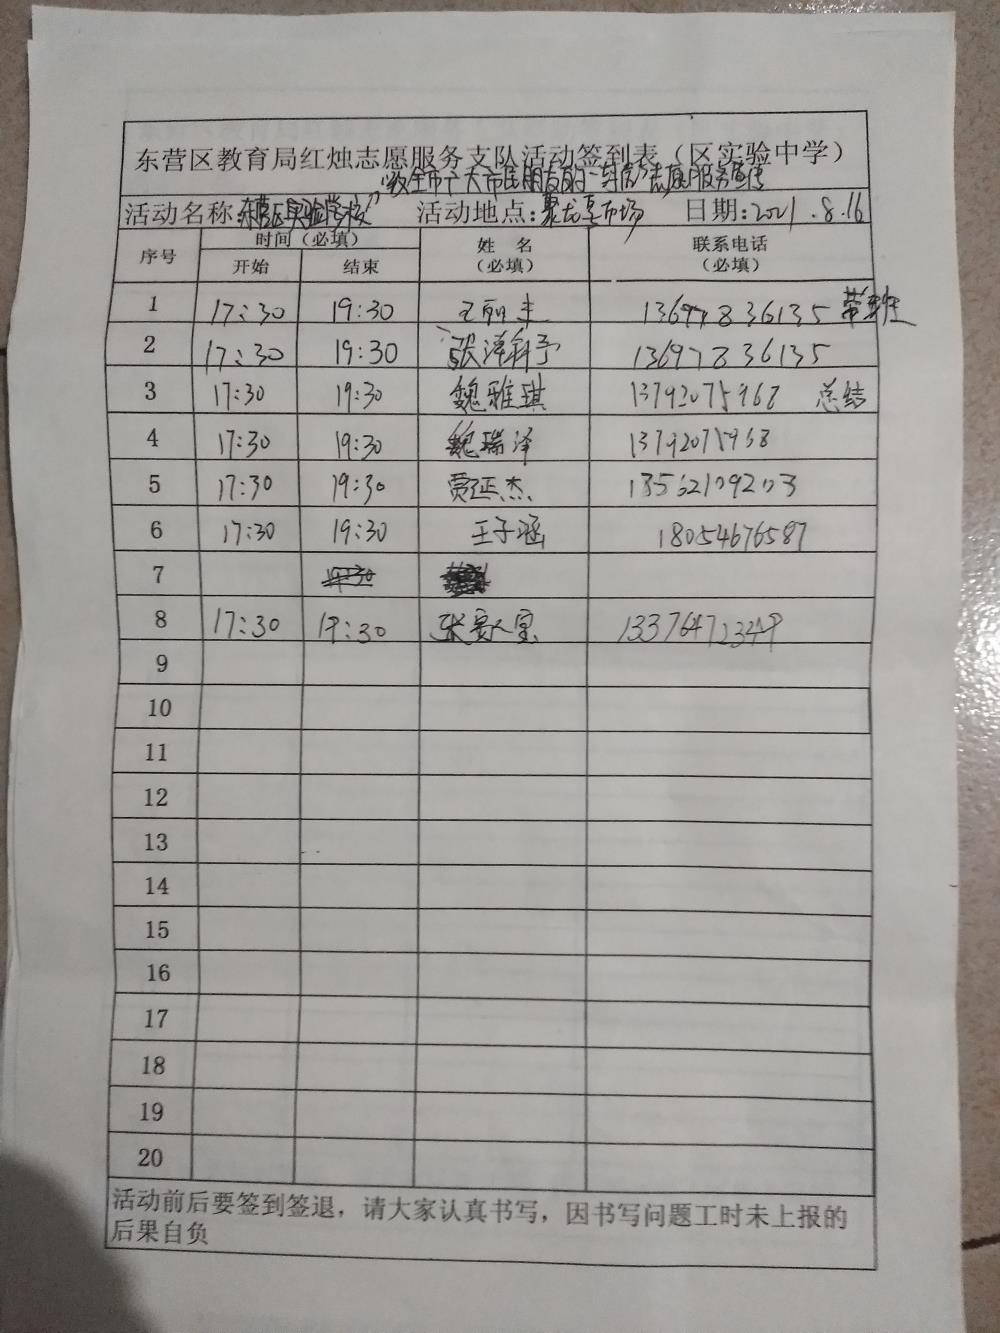 东营区教育局红烛志愿服务支队活动签到表（区实验中学）
致全市广大市民朋友的一封信"志愿服务宣传
活动名称:东营区实验学校 活动地点:聚龙享市场 日期:2021.8.16
序号 时间（必填） 姓 名（必填） 联系电话（必填）
开始 结束
1 17:30 19:30 王丽 13697836135
2 17:30 19:30 张泽 13697836135
3 17:30 19:30 魏雅琪 13792075968 总结
4 17:30 19:30 魏瑞泽 13792075968
5 17:30 19:30 贾延杰 13562109203
6 17:30 19:30 王子涵 18054676587
7 19:30
8 17:30 19:30 张
9
10
11
12
13
14
15
16
17
18
19
20
活动前后要签到签退，请大家认真书写，因书写问题工时未上报的
后果自负